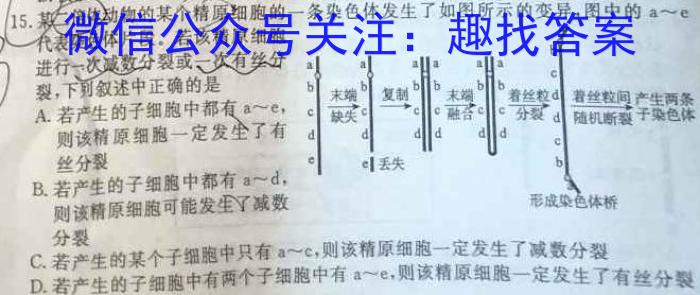 15.某 体动物的某个精原细胞的一条染色体发生了如图所示的变异,图中的 a～e
微信公众号关注：趣找答案
代表
进行一次减数分裂或一次有丝分
裂,下列叙述中正确的是
A. 若产生的子细胞中都有 a～e,
则该精原细胞一定发生了有
丝分裂
B. 若产生的子细胞中都有 a～d,
则该精原细胞可能发生了减数
分裂
a b c d e
末端
缺失
a b c d
e 丢失
复制
a a
b b
c c
d d
末端
融合
a a
b b
c c
d d
着丝粒
分裂
b c d d c b
形成染色体桥
着丝粒间
随机断裂
产生两条
子染色体
C. 若产生的某个子细胞中只有 a～c,则该精原细胞一定发生了减数分裂
D. 若产生的子细胞中有两个子细胞中有 a～e,则该精原细胞一定发生了有丝分裂